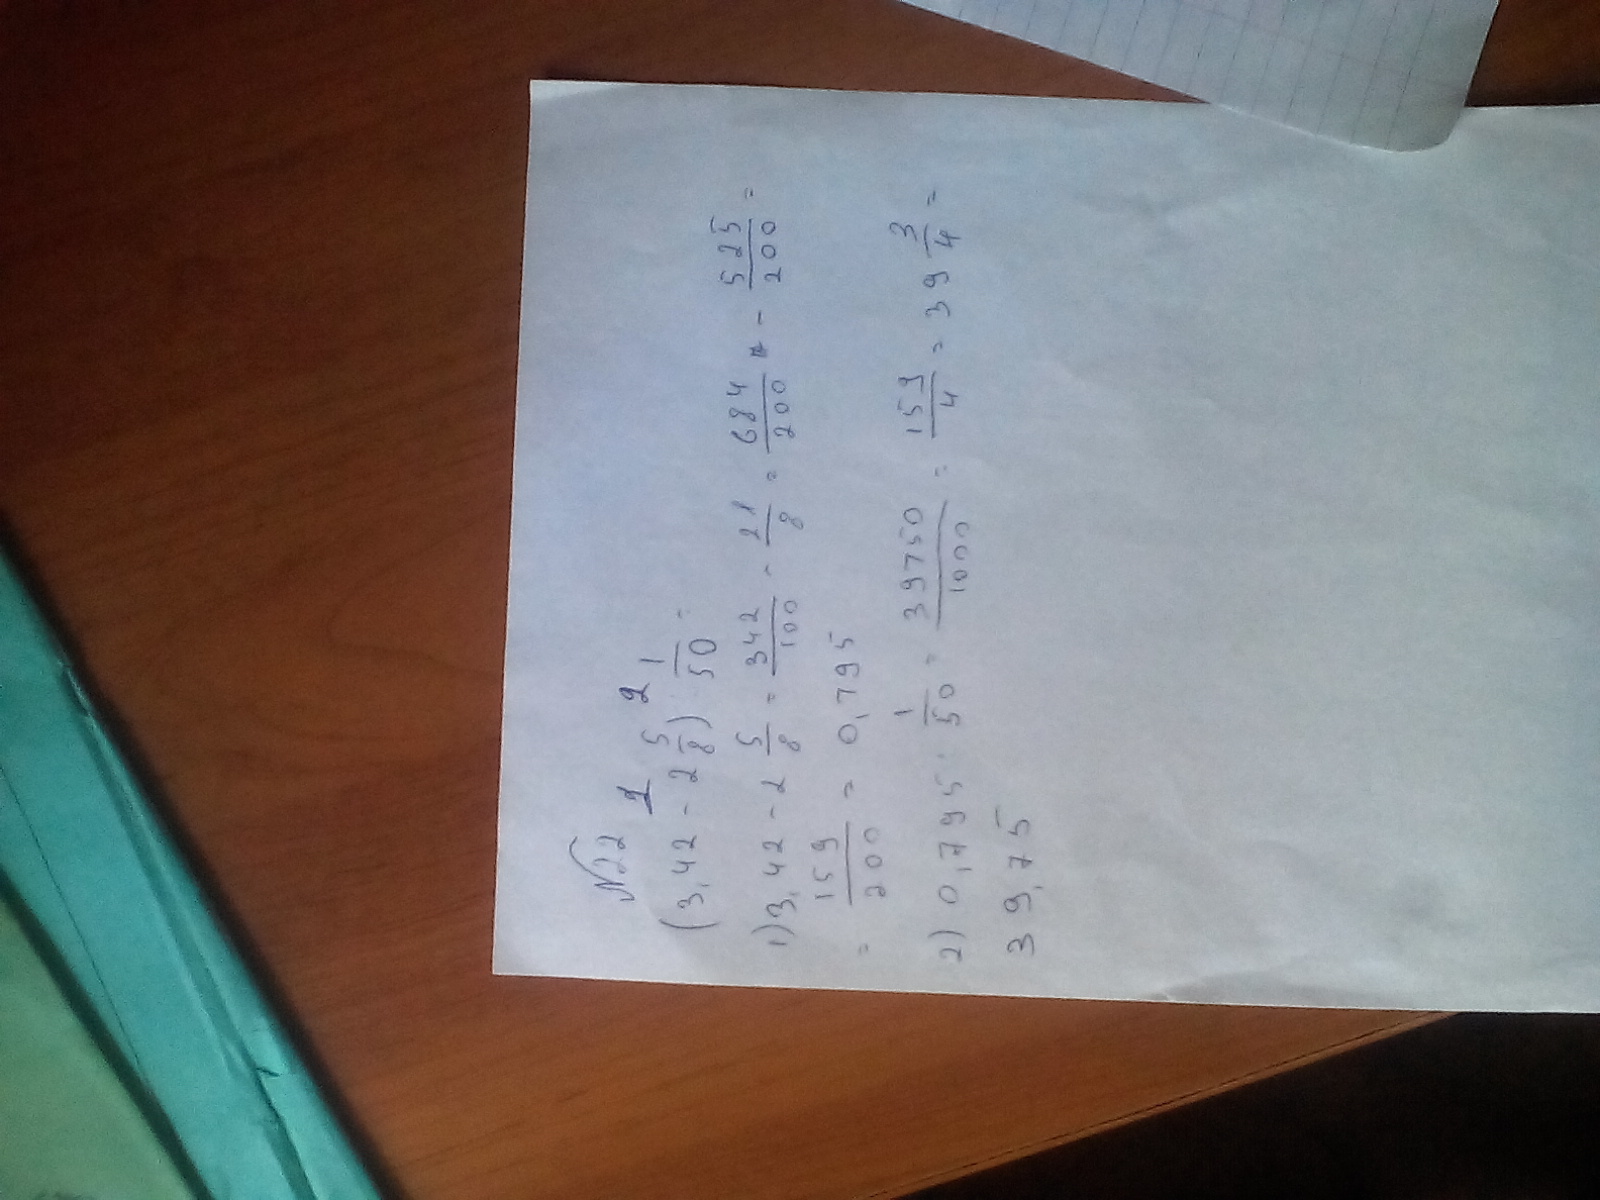 №22
1 2
(3,42 - 2 5/8) : 1/50 =
1) 3,42 - 2 5/8 = 342/100 - 21/8 = 684/200 - 525/200 =
= 159/200 = 0,795
2) 0,795 : 1/50 = 39750/1000 = 159/4 = 39 3/4 =
39,75